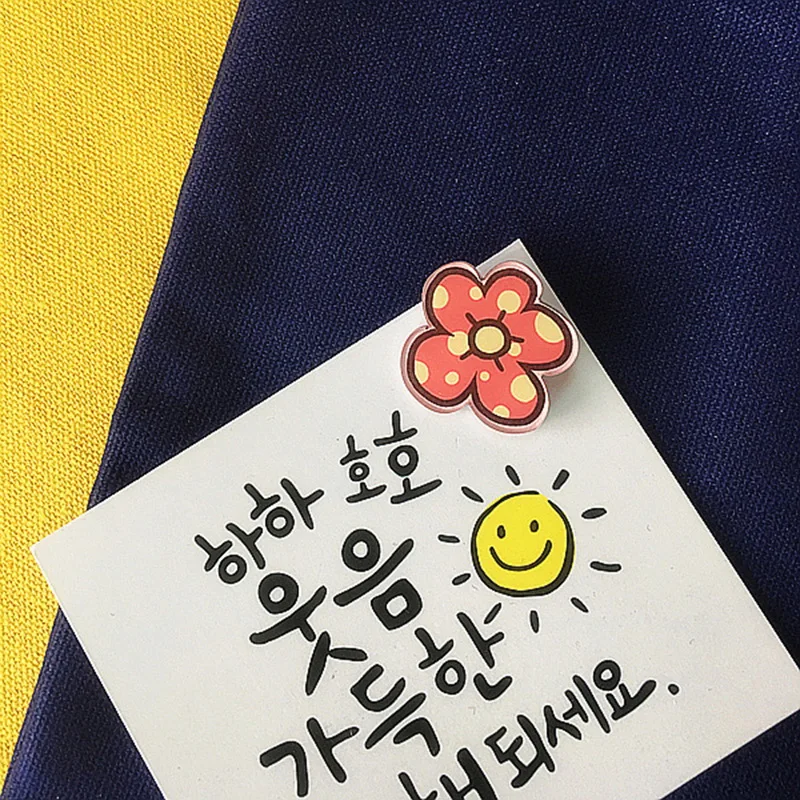 하하 호호
웃음
가득한
해 되세요.